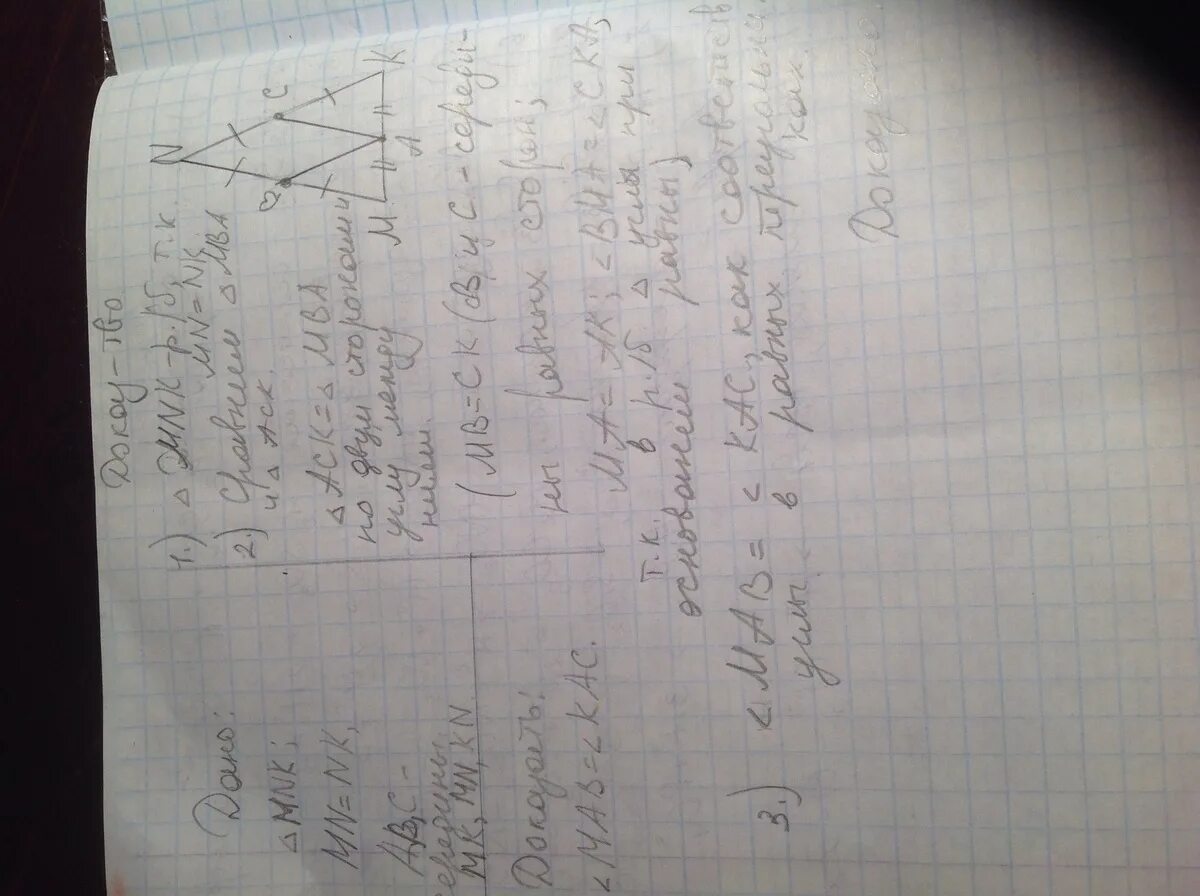 Дано:
△MNK;
MN=NK,
A,B,C-
середины
MK, MN, KN
Доказать:
<MAB=<KAC.
Доказ-тво
1.) △MNK-р.\б, т.к.
MN=NK.
2.) Сравнием △MBA
и △ACK.
△ACK=△MBA
по двум сторонами и
углу между
ними.
(MB=CK (B и C-середи-
ны равных сторон;
MA=AK; <BMA=<CKA,
т.к. в р.\б △ углы при
основанием равны)
3.) <MAB=<KAC, как соответств
углы в равных треугольни
ках.
Доказано.
N
B
C
M
A
K